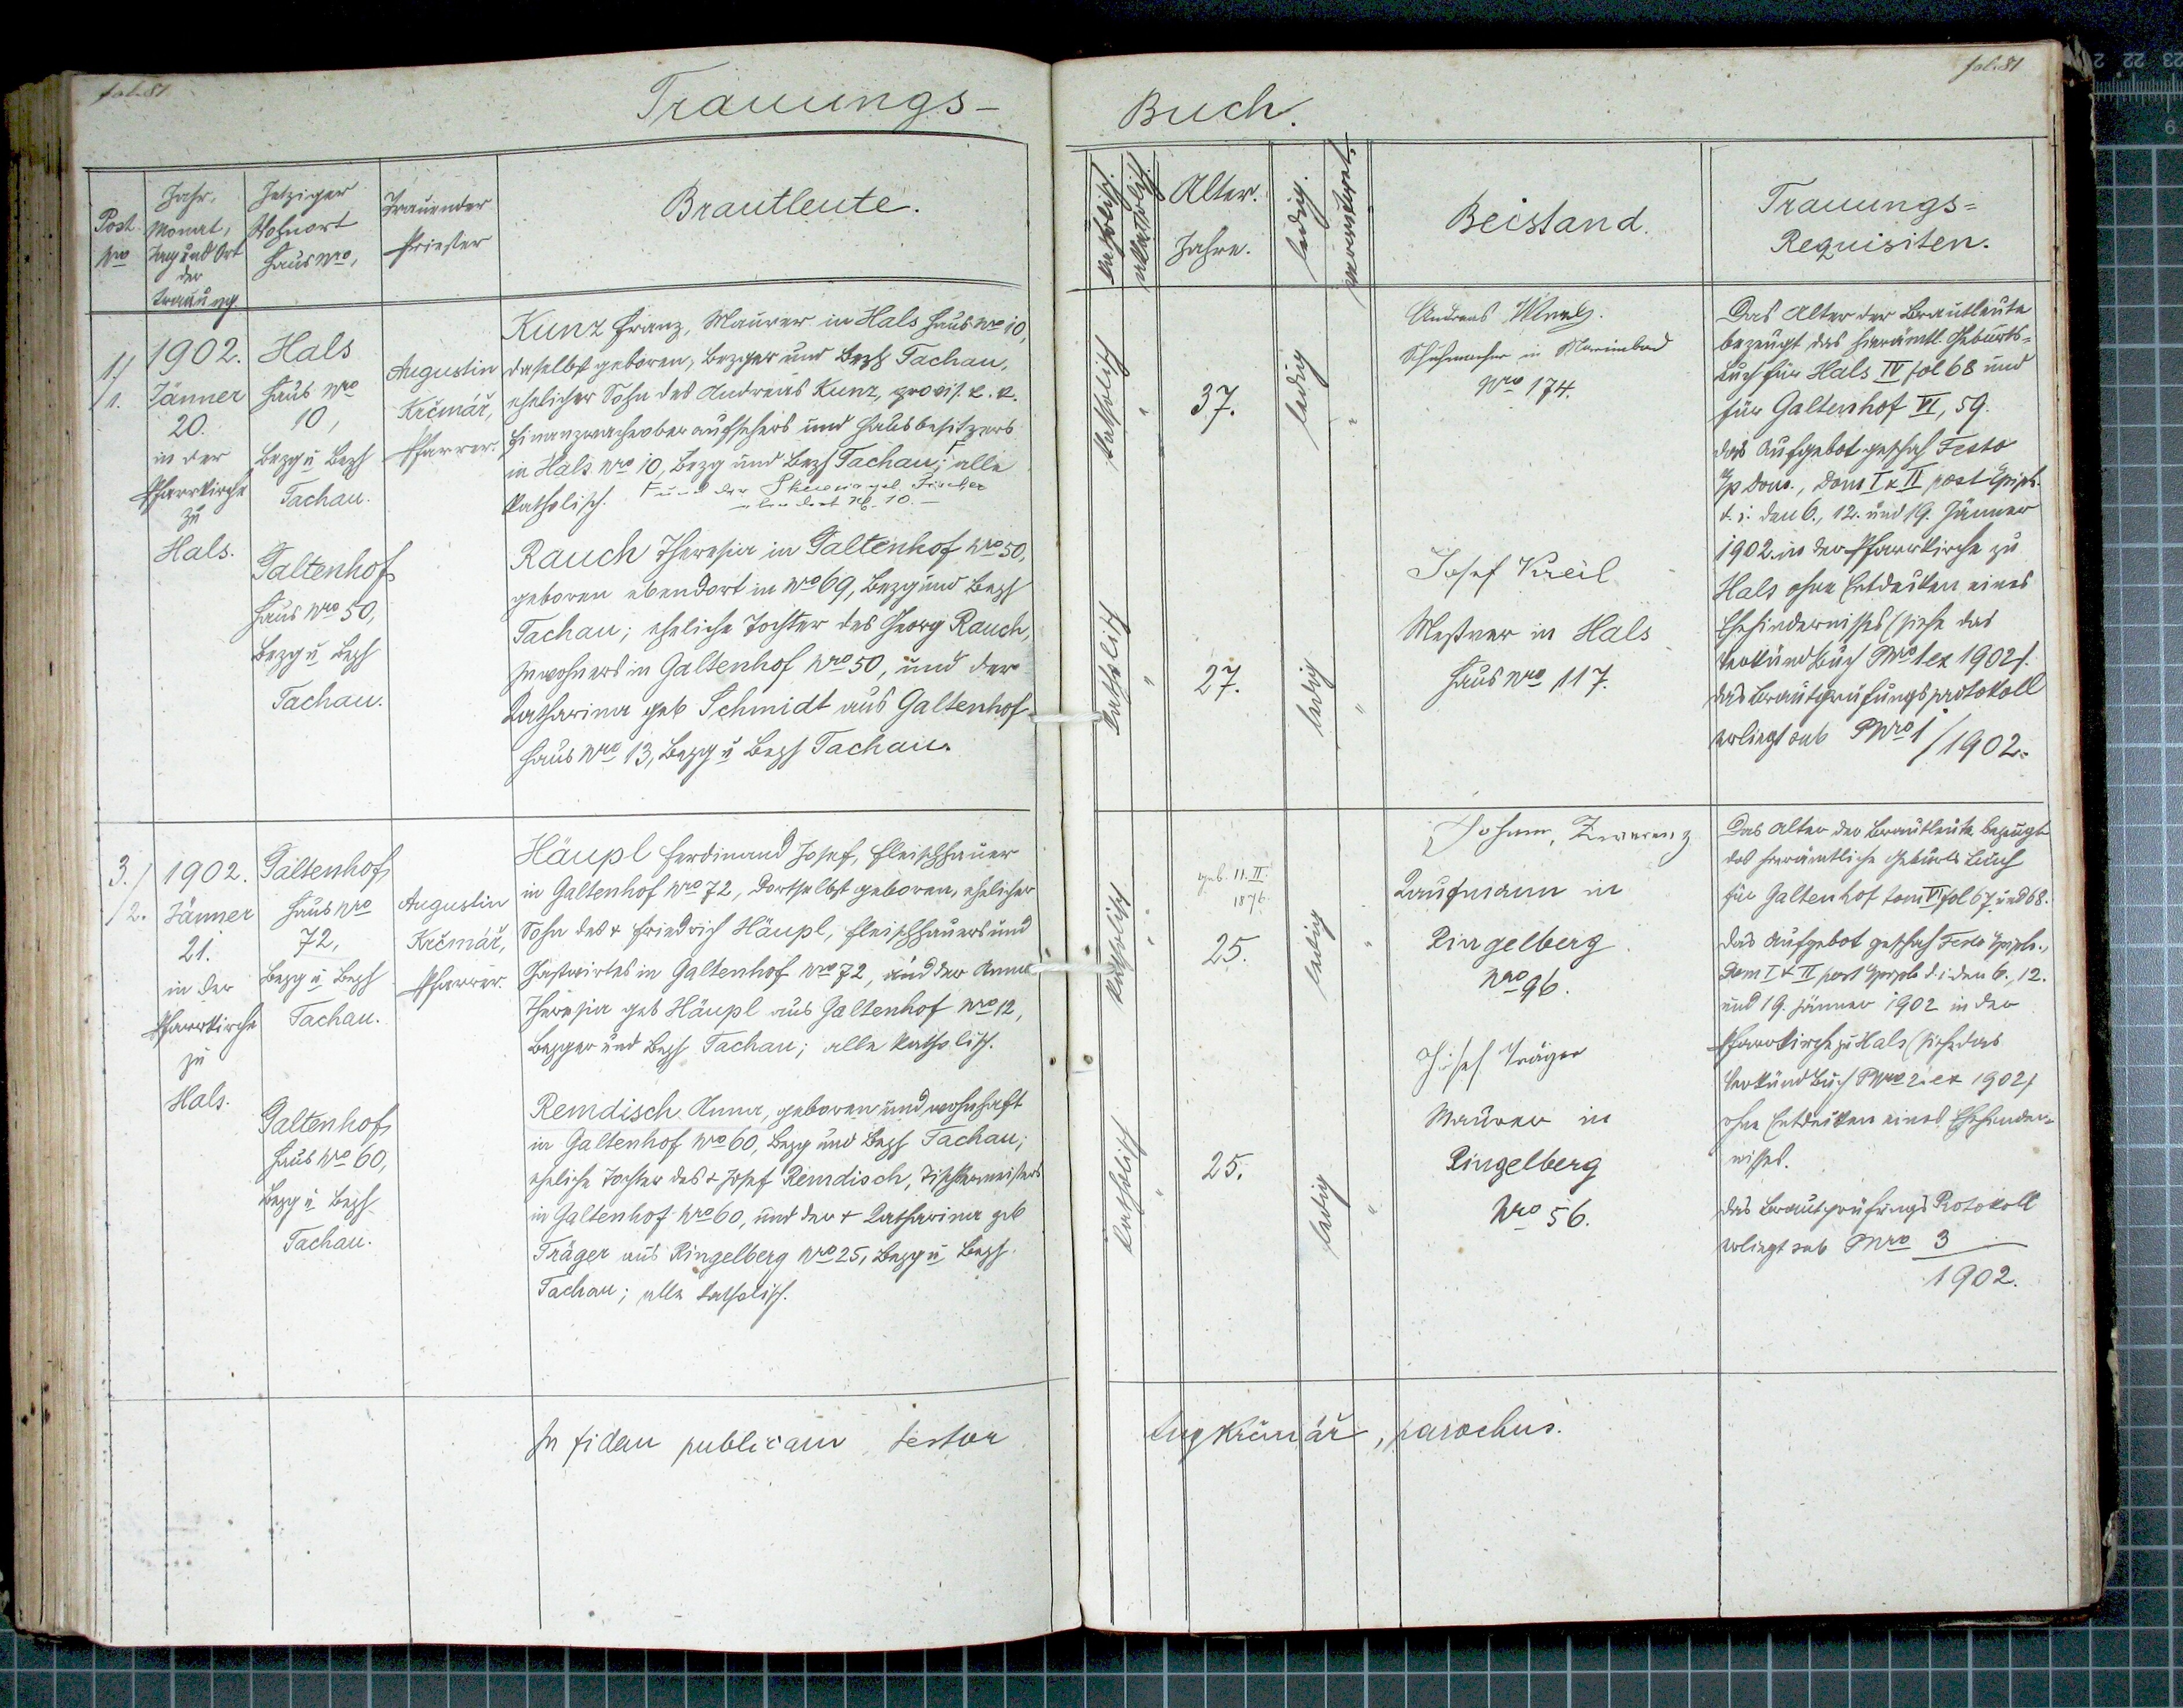 fol. 81
Trauungs-
Post
Nro
Jahr,
Monat,
Tag und Ort
der
Trauung
Jetziger
Wohnort
Haus Nro,
Trauender
Priester
Brautleute.
1./
/1.
1902.
Jänner
20.
in der
Pfarrkirche
zu
Hals.
Hals
Haus Nro
10,
Bezg u Bezh
Tachau.
Augustin
Krčmář,
Pfarrer.
Kunz Franz, Maurer in Hals Haus Nro 10,
daselbst geboren, Bezger und Bezh Tachau,
ehelicher Sohn des Andreas Kunz, provis. k. k.
Finanzwachoberaufsehers und Hausbesitzers
in Hals Nro 10, Bezg und Bezh Tachau; alle
katholisch.
und der Fischer
10.
Galtenhof
Haus Nro 50,
Bezg u Bezh
Tachau.
Rauch Theresia in Galtenhof Nro 50,
geboren ebendort in Nro 69, Bezg und Bezh
Tachau; eheliche Tochter des Georg Rauch,
Inwohners in Galtenhof Nro 50, und der
Katharina geb Schmidt aus Galtenhof
Haus Nro 13, Bezg u Bezh Tachau.
3./
/2.
1902.
Jänner
21.
in der
Pfarrkirche
zu
Hals.
Galtenhof
Haus Nro
72,
Bezg u Bezh
Tachau.
Augustin
Krčmář,
Pfarrer.
Häupl Ferdinand Josef, Fleischhauer
in Galtenhof Nro 72, dortselbst geboren, ehelicher
Sohn des + Friedrich Häupl, Fleischhauers und
Gastwirtes in Galtenhof Nro 72, und der Anna
Theresia geb Häupl aus Galtenhof Nro 12,
Bezger und Bezh Tachau; alle katholisch.
Galtenhof
Haus Nro 60,
Bezg u Bezh
Tachau.
Remdisch Anna, geboren und wohnhaft
in Galtenhof Nro 60, Bezg und Bezh Tachau;
eheliche Tochter des + Josef Remdisch, Tischlermeisters
in Galtenhof Nro 60, und der + Katharina geb
Träger aus Ringelberg Nro 25, Bezg u Bezh.
Tachau; alle katholisch.
In fidem publicam testor
fol. 81
Buch.
katholisch.
akatholisch.
Alter.
Jahre.
ledig.
verwitwet.
Beistand.
Trauungs=
Requisiten.
katholisch
"
37.
ledig
"
Andreas
Schuhmacher in Marienbad
Nro 174.
katholisch
"
27.
ledig
"
Josef Kreil
Meßner in Hals
Haus Nro 117.
Das Alter der Brautleute
bezeugt das hierämtl. Geburts=
buch für Hals IV fol 68 und
für Galtenhof VI, 59.
Das Aufgebot geschah Festo
Ep Dom., Dom I & II post Epiph.
d. i. den 6., 12. und 19. Jänner
1902. in der Pfarrkirche zu
Hals ohne Entdecken eines
Ehehindernisses (siehe das
Verkündbuch PNro 1 ex 1902).
Das Brautprüfungsprotokoll
erliegt sub PNro 1/1902.
katholisch
"
geb. 11. II.
1876.
25.
ledig
"
Johann
Kaufmann in
Ringelberg
Nro 96.
katholisch
"
25.
ledig
"
Josef Träger
Maurer in
Ringelberg
Nro 56.
Das Alter der Brautleute bezeugt
das hierämtliche Geburts buch
für Galtenhof tom VI fol 67 und 68.
Das Aufgebot geschah Festo Epiph.,
Dom I & II post Epiph d. i. den 6., 12.
und 19. Jänner 1902 in der
Pfarrkirche zu Hals (siehe das
Verkündbuch PNro 2 ex 1902)
ohne Entdecken eines Ehehinder=
nisses.
Das Brautprüfungs Protokoll
erliegt sub PNro 3
1902.
Aug Krčmář, parochus.